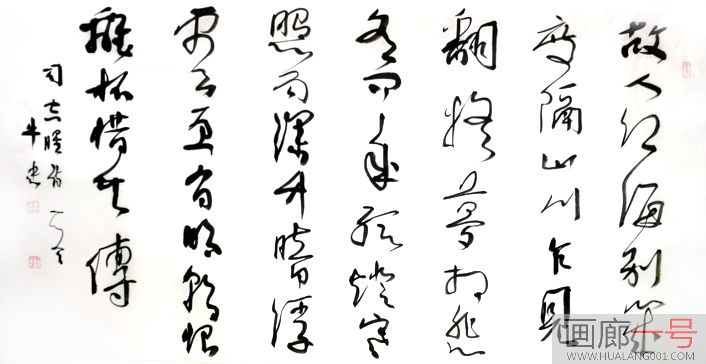 故人江海別幾
度隔山川乍見
翻疑夢相悲
各問年孤燈寒
照雨深竹暗浮
更有明朝恨
離杯惜共傳
司空曙詩
画廊一号
WWW.HUALANG001.COM